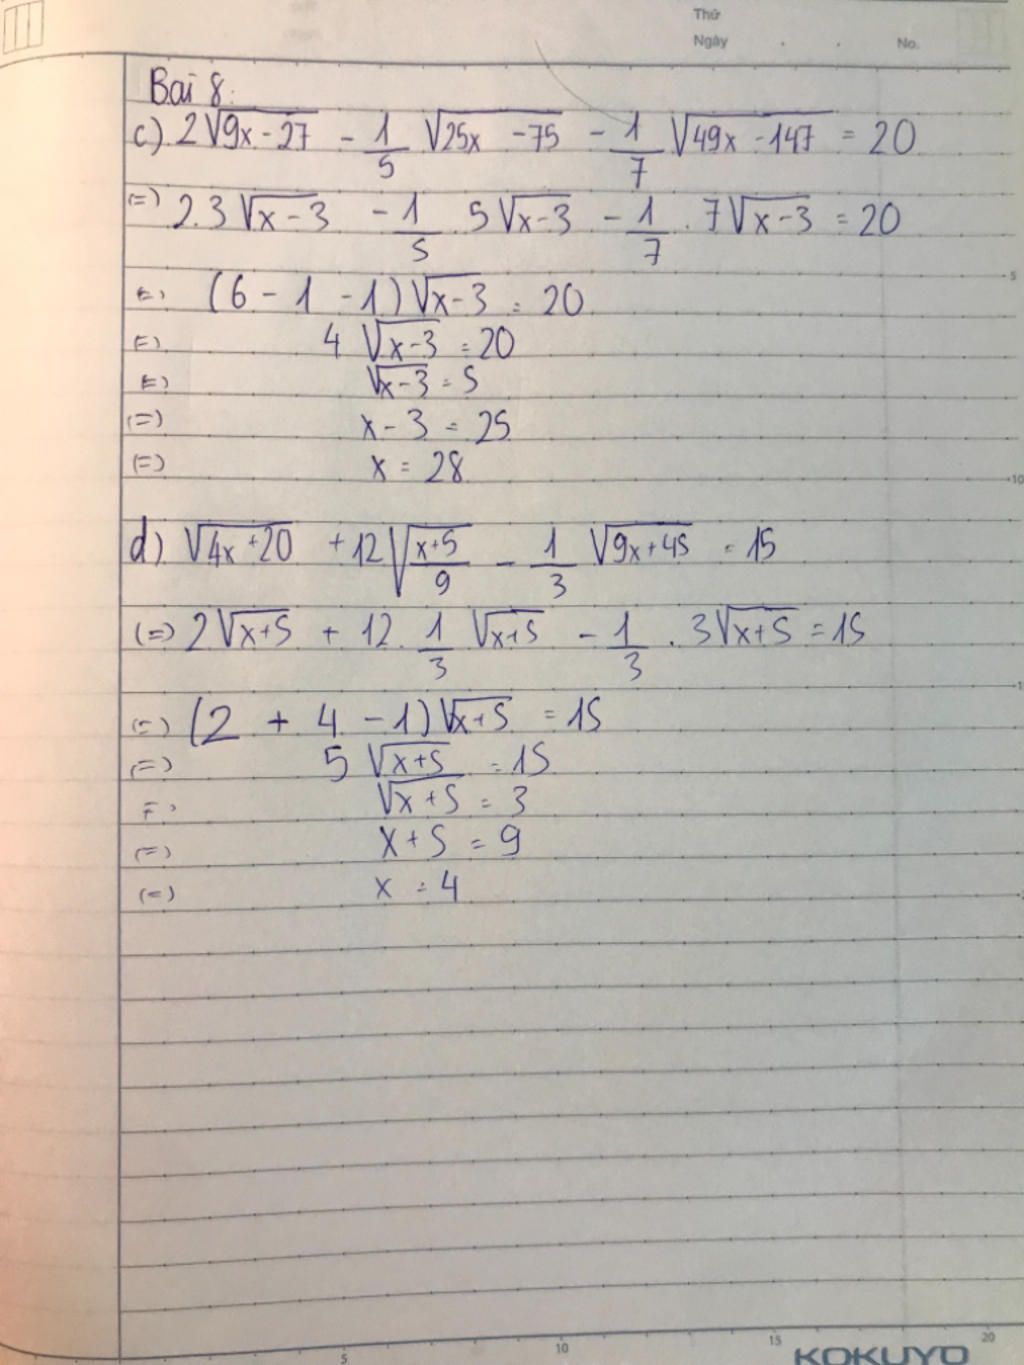 Thứ
Ngày . . No.
Bài 8:
c) 2√(9x - 27) - 1/5 √(25x - 75) - 1/7 √(49x - 147) = 20
(=) 2.3√(x - 3) - 1/5 . 5√(x - 3) - 1/7 . 7√(x - 3) = 20
(=) (6 - 1 - 1)√(x - 3) = 20
(=) 4√(x - 3) = 20
(=) √(x - 3) = 5
(=) x - 3 = 25
(=) x = 28
d) √(4x + 20) + 12√((x+5)/9) - 1/3 √(9x + 45) = 15
(=) 2√(x+5) + 12 . 1/3 √(x+5) - 1/3 . 3√(x+5) = 15
(=) (2 + 4 - 1)√(x+5) = 15
(=) 5√(x+5) = 15
(=) √(x+5) = 3
(=) x + 5 = 9
(=) x = 4
5
10
5 10 15 20
KOKUYO